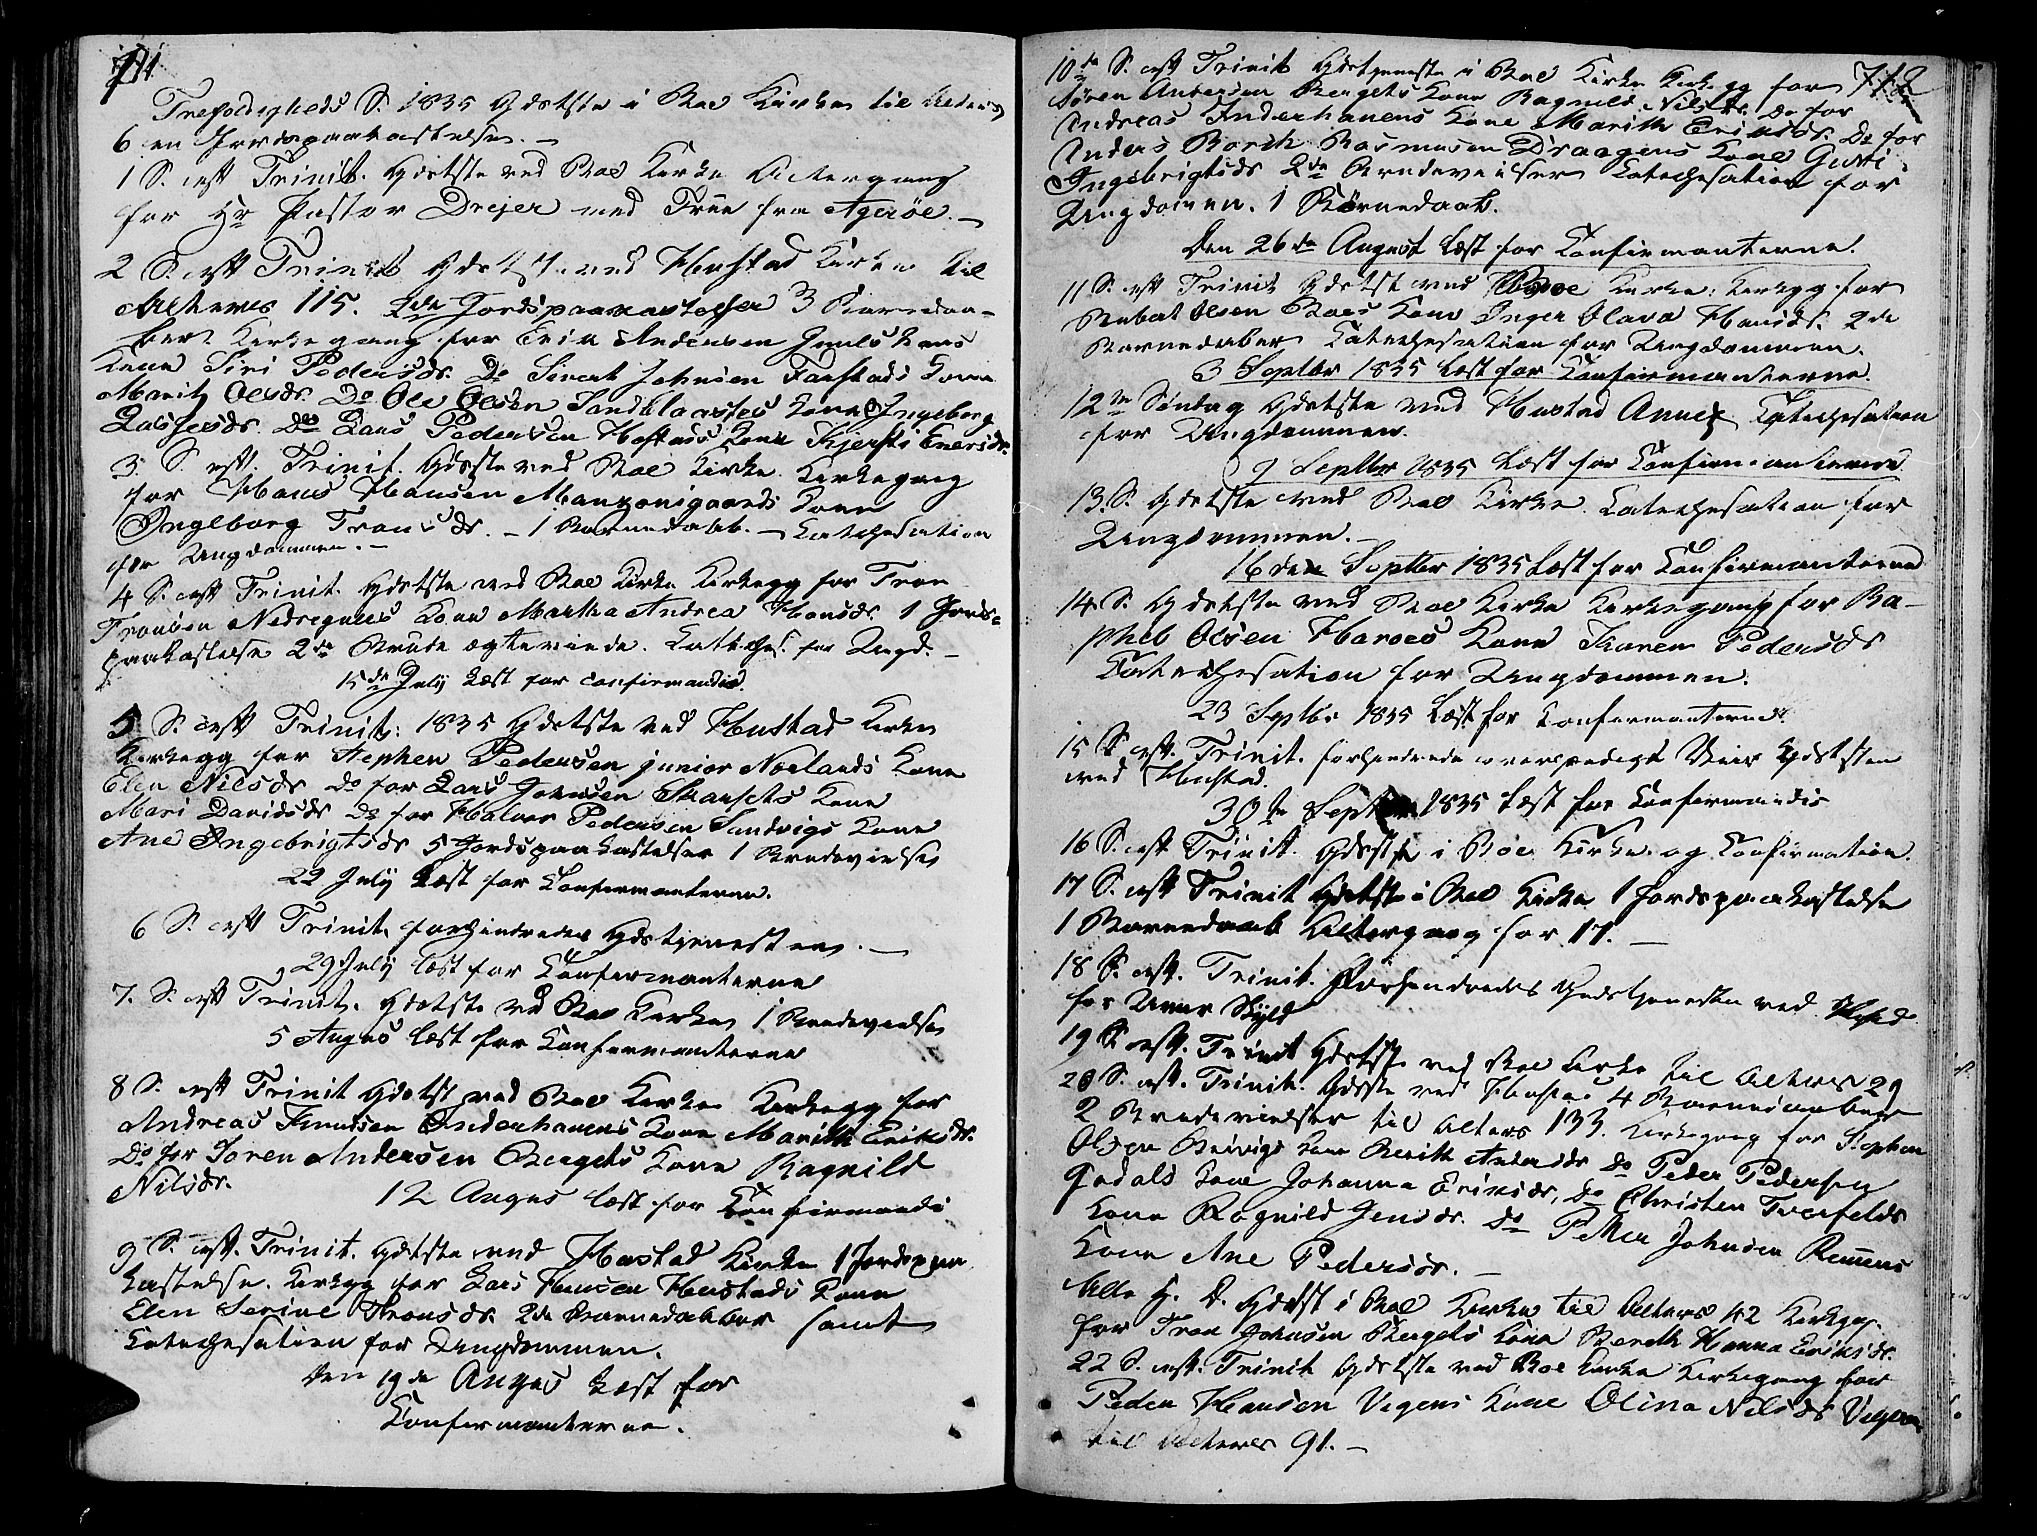 711
Trefoldigheds S. 1835 Gdstste i Boe Kirke til Alters
6 en Jordspaakastelse. —
1 S. eft Trinit. Gdstste ved Boe Kirke Altergang
for Hr Pastor Drejer med Frue fra Agerøe. —
2 S. eft Trinit Gdstst. ved Hustad Kirke til
Alters 115. 2de Jordspaakastelser 3 Barnedaa-
ber Kirkegang for Erik Andersen Gaules Kone
Kone Siri Pedersdr. Do Sivert Johnsen Farstads Kone
Marit Olsdr. Do Ole Olsen Sandblaastes Kone Ingeborg
Lassesdr. Do Lars Pedersen Hostads Kone Kjersti Eversdr.
3 S. eft. Trinit. Gdstste ved Boe Kirke. Kirkegang
for Hans Hansen Mangonigaards Kone
Ingeborg Tronsdr. — 1 Barnedaab. — Catechesation
for Ungdommen. —
4 S. eft Trinit. Gdstste ved Boe Kirke Kirkegg for Tron
Tronsen Nedregaars Kone Martha Andrea Hansdr. 1 Jords-
paakastelse 2de Brude egteviede. Catechs. for Ungd. —
15de July Læst for Confirmandis.
5 S. eft Trinit: 1835 Gdstste ved Hustad Kirke
Kirkegg for Stephen Pedersen junior Norlands Kone
Elen Nilsdr do for Lars Johnsen Skarsets Kone
Mari Davidsdr do for Halvor Pedersen Sandvigs Kone
Ane Ingebrigtsdr 5 Jordspaakastelser 1 Brudevielse
22 July Læst for Confirmanterne.
6 S. eft Trinit. forhindredes Gdstjenesten. —
29 July læst for Confirmanterne
7. S. eft Trinit. Gdstste ved Boe Kirke 1 Brudevielse
5 Augus læst for Confirmanterne
8 S. eft Trinit Gdstst ved Boe Kirke Kirkegg for
Andreas Knudsen Inderhauens Kone Marith Eriksdr.
Do for Søren Andersen Bergets Kone Ragnild
Nilsdr.
12 Augus læst for Confirmandis
9 S. eft. Trinit. Gdstste ved Hustad Kirke 1 Jordspaa
kastelse. Kirkegg for Lars Hansen Hustads Kone
Elen Serine Tronsdr. 2de Barnedaaber samt
Catechesation for Ungdommen.
Den 19de Augus Læst for
Confirmanterne.
712
10de S. eft Trinit Gdstjeneste i Boe Kirke Kirkegg for
Søren Andersen Bergets Kone Ragnild Nilsdr. Do for
Andreas Inderhauens Kone Marith Eriksdr. Do for
Anders Borch Rasmusen Draagens Kone Gurti
Ingebrigtsdr 2de Brudevielser Catechesation for
Ungdomen. 1 Børnedaab.
Den 26de August Læst for Confirmanterne.
11 S. eft Trinit Gdstst ved Boe Kirke. Kirkegg for
Olsen Boes Kone Inger Olava Hansdr. 2de
Barnedaaber Catechesation for Ungdommen.
3 Septbr 1835 Læst for Confirmanterne.
12te Søndag Gdstste ved Hustad Annex Catechesation
for Ungdommen.
9 Septbr 1835 Læst for Confirmanterne
13. S. Gdstste ved Boe Kirke. Catechesation for
Ungdommen. —
16den Septbr 1835 Læst for Confirmanterne
14 S. Gdstste ved Boe Kirke Kirkegang for Ra-
phel Olsen Haroes Kone Karen Pedersdr
Catechesation for Ungdommen.
23 Septbr 1835 Læst for Confirmanterne
15 S. eft. Trinit. forhindrede Veir Gdststen
ved Hustad.
30te Septbr 1835 Læst for Confirmandis
16 S. eft Trinit. Gdstste i Boe Kirke og Confirmation.
17 S. eft Trinit Gdstste i Boe Kirke 1 Jordspaakastelse
1 Barnedaab Altergang for 17. —
18 S. eft. Trinit. Forhindredes Gudstjenesten ved Hustd
for Veirs Skyld
19 S. eft. Trinit Gdstste ved Boe Kirke til Alters 29
20 S. eft. Trinit. Gdstste ved Hustad 4 Barnedaaber
2 Brudevielser til Alters 133. Kirkegang for Stephen
Olsen Kone Berith Andersdr Do Peder Pedersen
Gadals Kone Johanna Eriksdr, Do Christen Tverfelds
Kone Ragnild Jensdr. Do Petter Johnsen Remens
Kone Ane Pedersdr. —
Alle H. D. Gdstst i Boe Kirke til Alters 42 Kirkegg.
for Tron Johnsen Bergets Kone Berith Hanna Eriksdr.
22 S. eft. Trinit Gdstste ved Boe Kirke Kirkegang for
Peder Hansen Vegens Kone Olina Nilsdr Vegen
til Alters 91. —